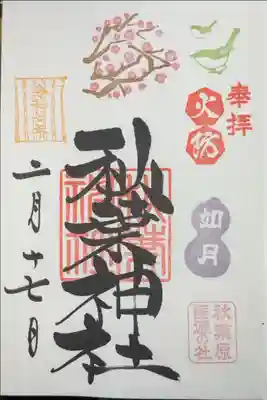 奉拝
火防
如月
秋葉原
起源の社
秋葉神社
二月十七日